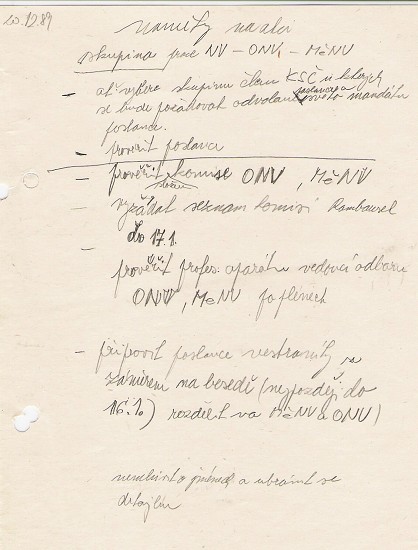 20.12.89
náměty na akci
skupina pro NV - ONV - MěNV
- ať vybere skupinu členů KSČ u kterých
se bude požadovat odvolání poslance a svého mandátu
poslance.
- prověřit poslance
- prověřit komise ONV, MěNV
- vyžádat seznam komisí Rambousek
do 17.1.
- prověřit profes. aparátu vedoucí odboru
ONV, MěNV po plénech
- připravit poslance nestraníky se
záměrem na besedě (nejpozději do
16.1.) rozdělit na MěNV a ONV)
a
detajlům